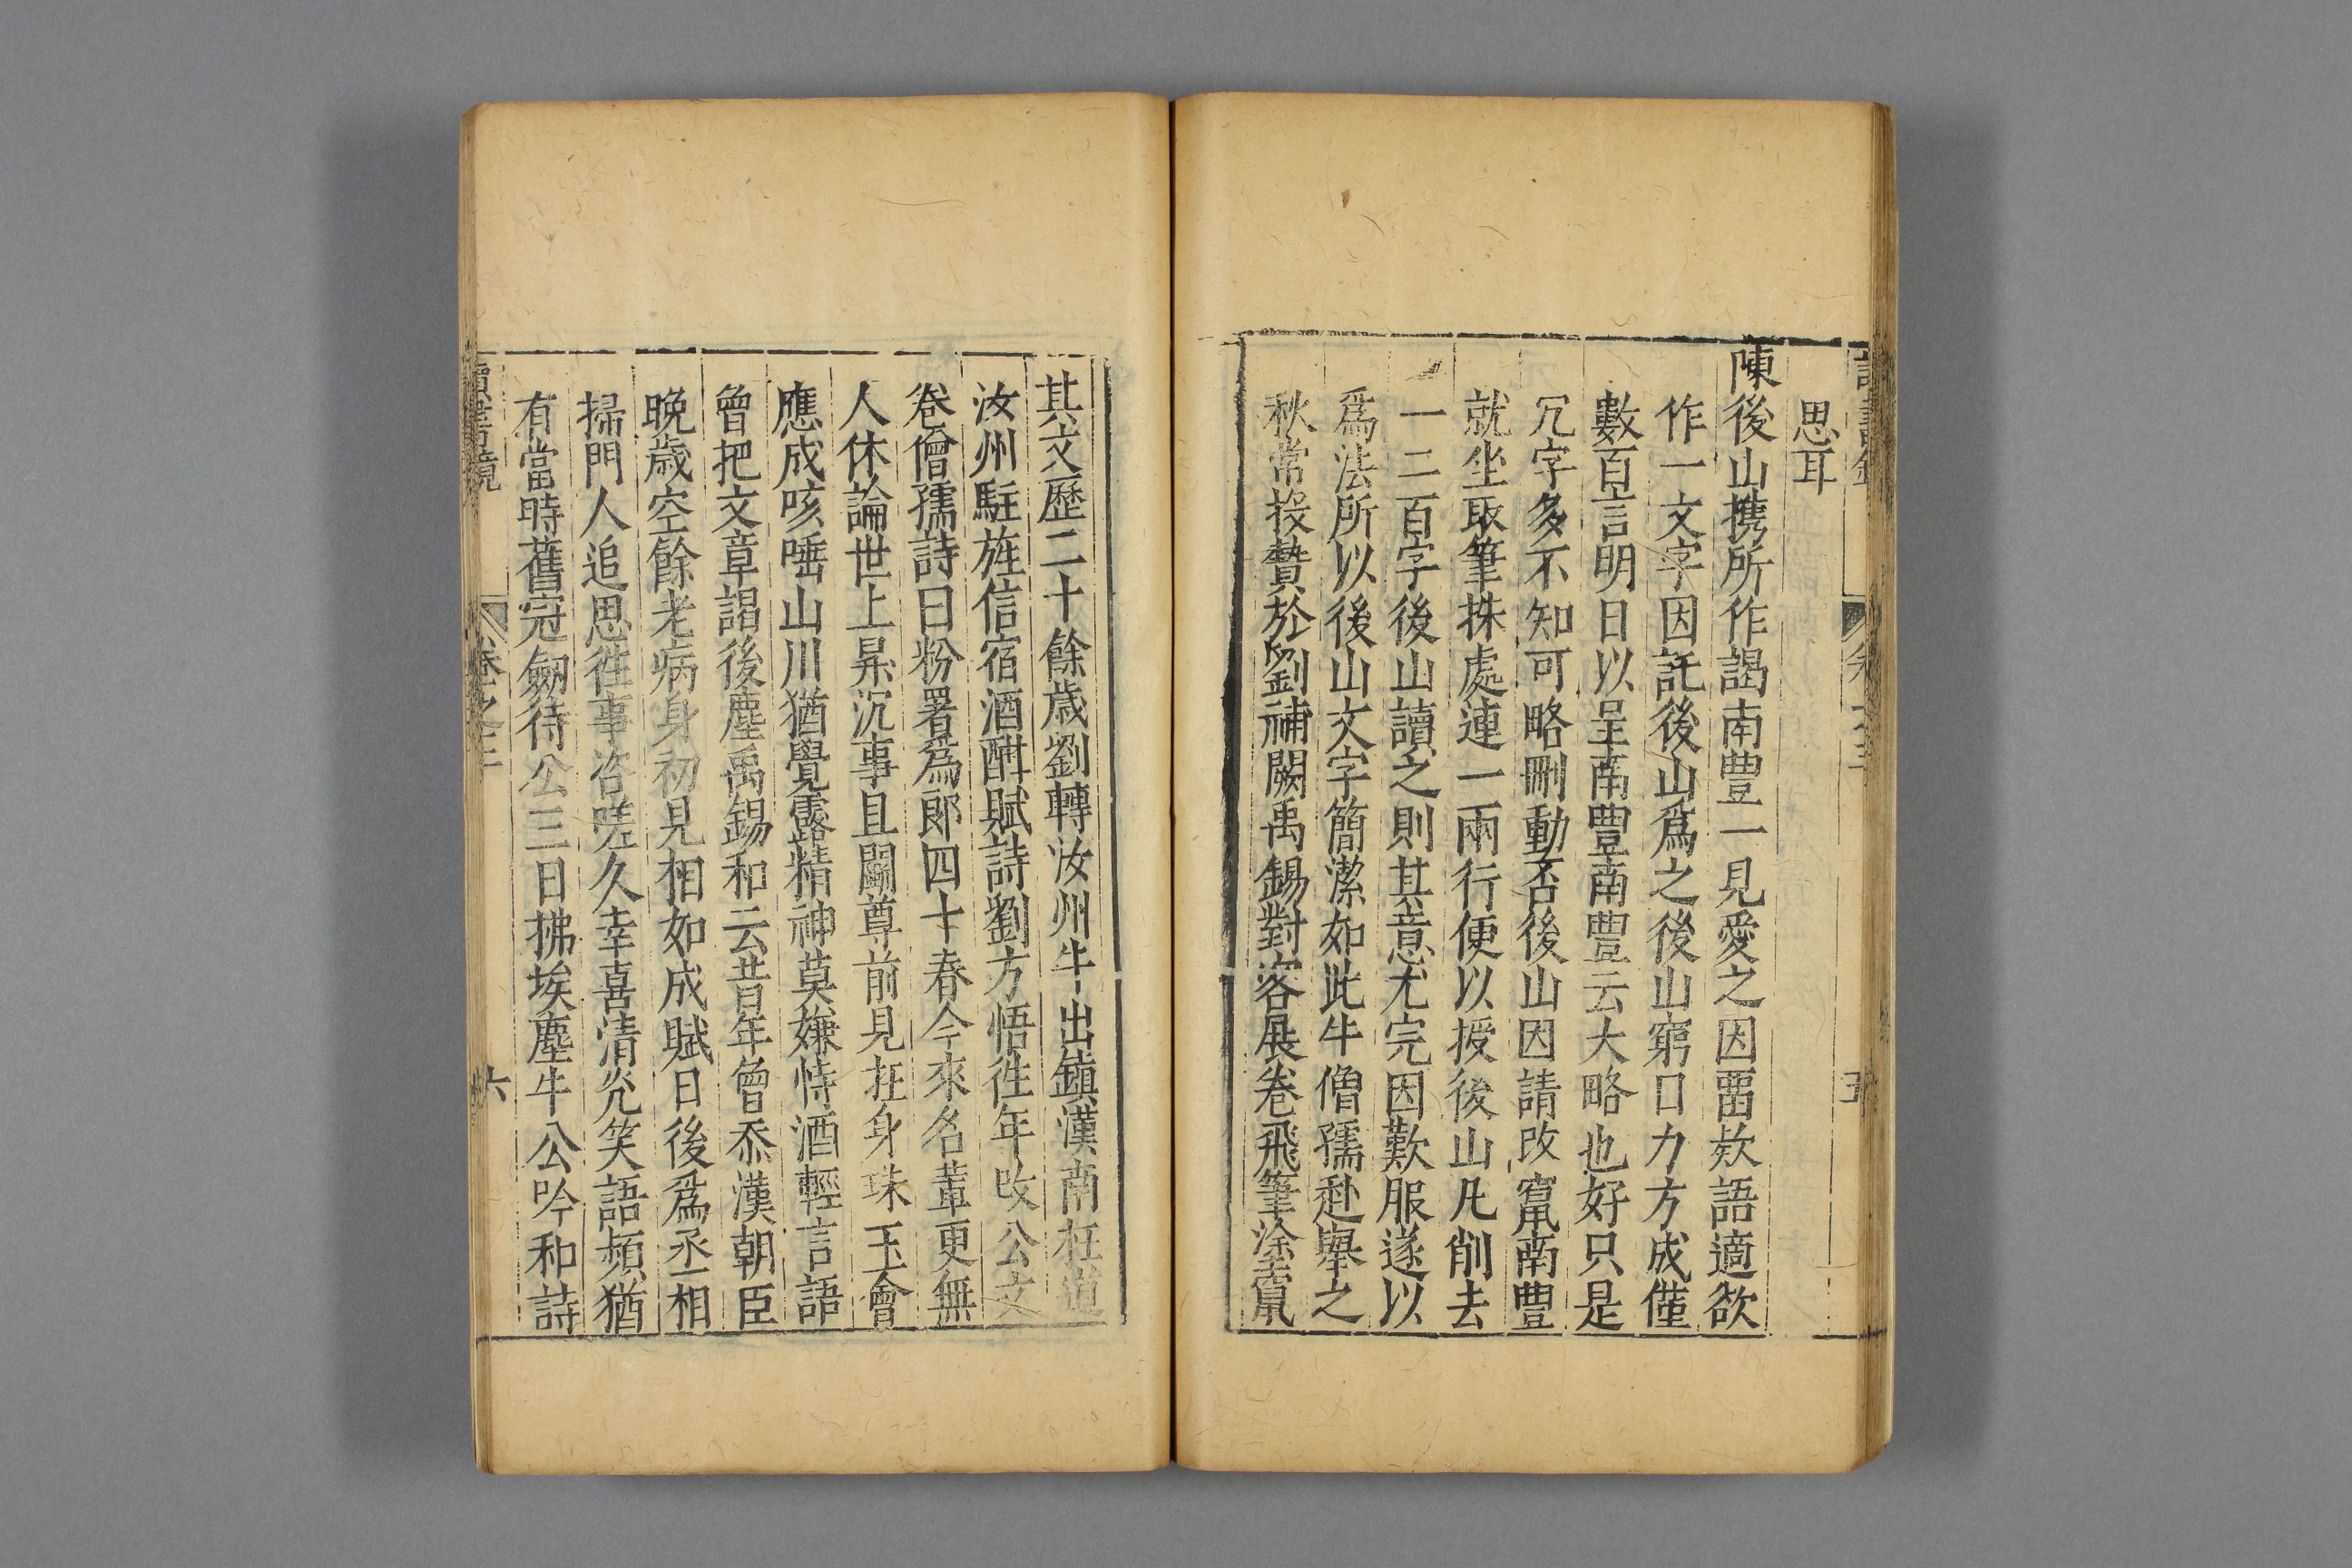 思耳
陳後山携所作謁南豐一見愛之因畱欵語適欲
作一文字因託後山爲之後山窮日力方成僅
數百言明日以呈南豐南豐云大略也好只是
冗字多不知可略刪動否後山因請改竄南豐
就坐取筆抹處連一兩行便以授後山凡削去
一二百字後山讀之則其意尤完因歎服遂以
爲法所以後山文字簡潔如此牛僧孺赴舉之
秋常投贄於劉補闕禹錫對客展卷飛筆塗竄
其文歷二十餘歲劉轉汝州牛出鎮漢南枉道
汝州駐旌信宿酒酣賦詩劉方悟徃年改公文
卷僧孺詩曰粉署爲郎四十春今來名輩更無
人休論世上昇沉事且鬭尊前見在身珠玉會
應成咳唾山川猶覺露精神莫嫌恃酒輕言語
曾把文章謁後塵禹錫和云昔年曾忝漢朝臣
晚歲空餘老病身初見相如成賦日後爲丞相
掃門人追思徃事咨嗟久幸喜清光笑語頻猶
有當時舊冠劒待公三日拂埃塵牛公吟和詩
讀書鏡 卷之三 六